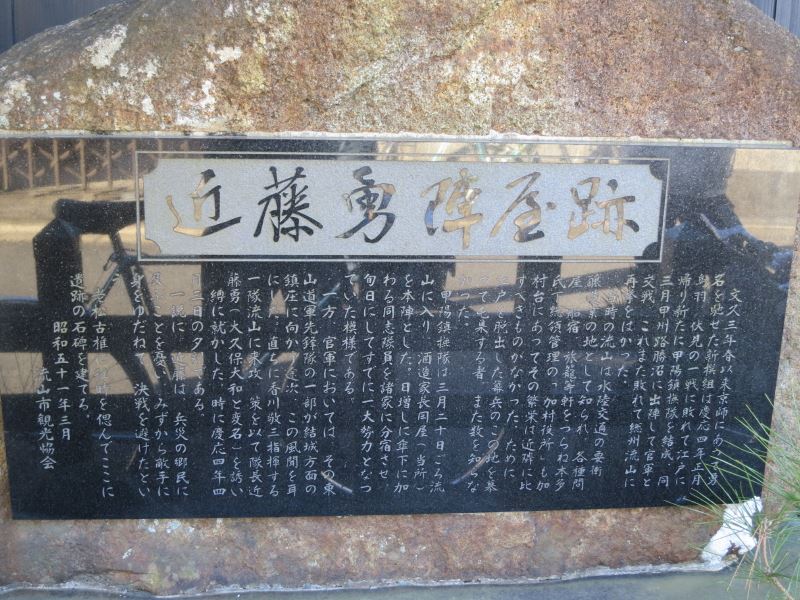 近藤勇陣屋跡
文久三年春以来京師にあって勇
名を馳せた新撰組は慶応四年正月
鳥羽、伏見の一戦に敗れて江戸に
帰り新たに甲陽鎮撫隊を結成、同
三月甲州路勝沼に出陣して官軍と
交戦、これまた敗れて総州流山に
再挙をはかった。
当時の流山は水陸交通の要衝
の地として知られ、各種問
屋、船宿、旅籠等軒をつらね本多
氏 領管理の「加村役所」も加
村台にあってその繁栄は近隣に比
すべきものがなかった。ために
江戸を脱出した幕兵のこの地を慕
って 集する者、また数を知 な
かった。
甲陽鎮撫隊は三月二十日ごろ流
山に入り、酒造家長岡屋(当所)
を本陣とした。日増しに傘下に加
わる同志隊員を諸家に分宿させ、
旬日にしてすでに一大勢力となっ
ていた模様である。
一方、官軍においては、その東
山道軍先鋒隊の一部が結城方面の
鎮圧に向かう途次、この風聞を耳
にした。直ちに香川敬三指揮する
一隊流山に来攻、策を以て隊長近
藤勇(大久保大和と変名)を誘い
縛に就かした。時に慶応四年四
月三日の夕 である。
一説に、近藤は、兵災の郷民に
及ぶことを憂へ、みずから敵手に
身をゆだねて、決戦を避けたとい
う
老松古椎、往時を偲んでここに
遺跡の石碑を建てる。
昭和五十一年三月
流山市観光協会